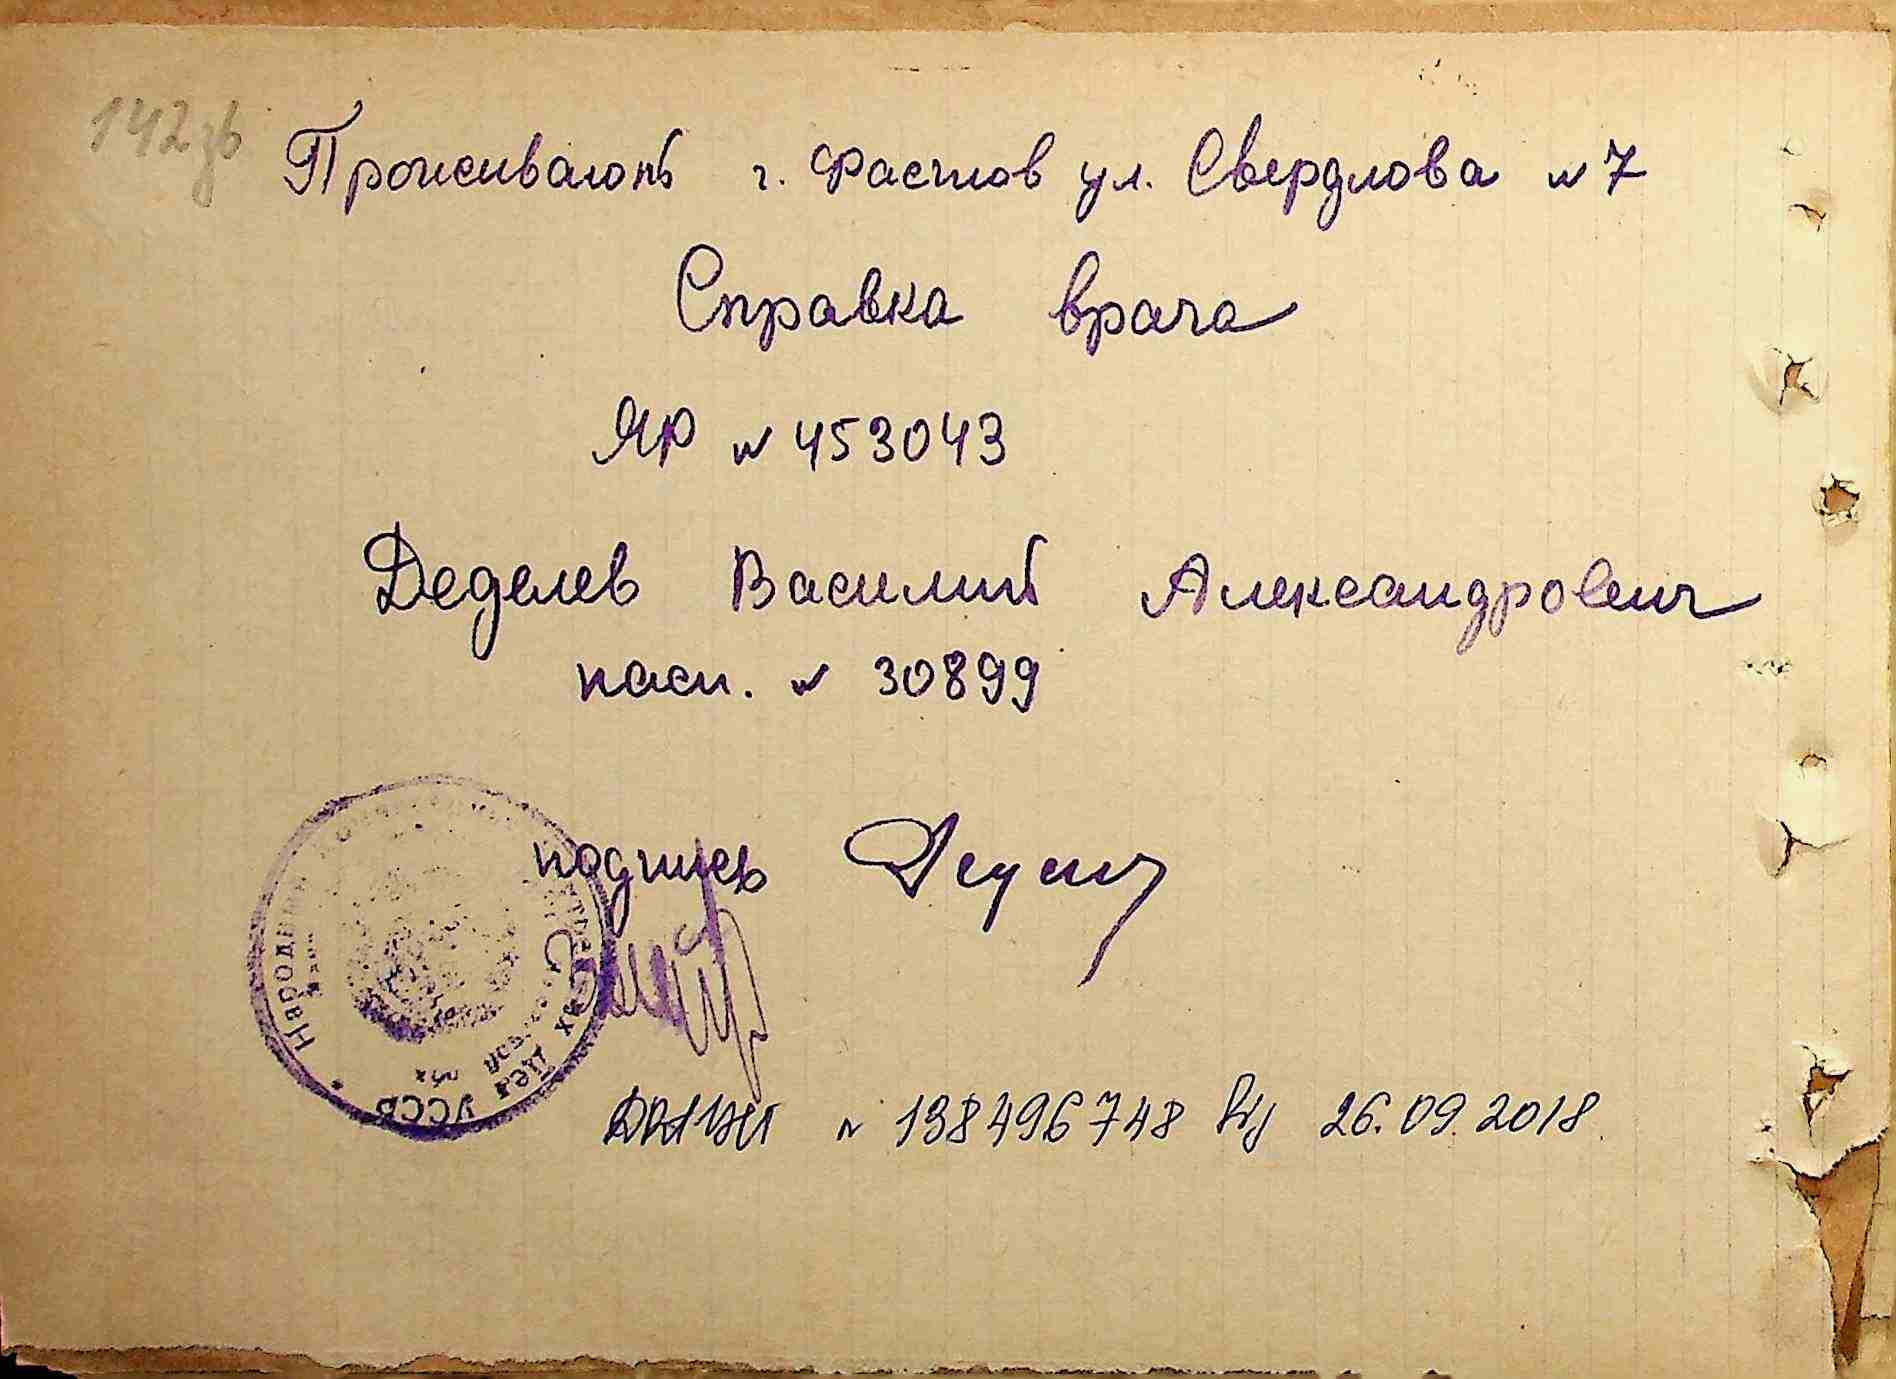 142зв
Проживают г. Фастов ул. Свердлова № 7
Справка врача
ЯР № 453043
Деделев Василий Александрович
пасп. № 30899
подпись
Народний УССР
№ 138496748 26.09.2018